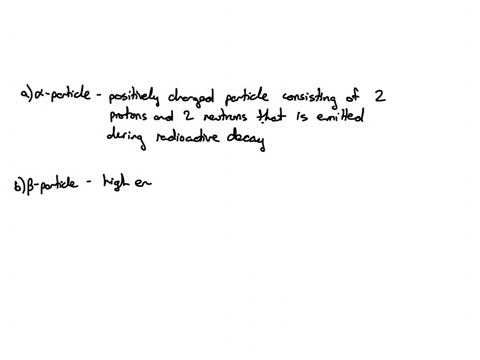 a) α-particle - positively charged particle consisting of 2
protons and 2 neutrons that is emitted
during radioactive decay
b) β-particle - high en